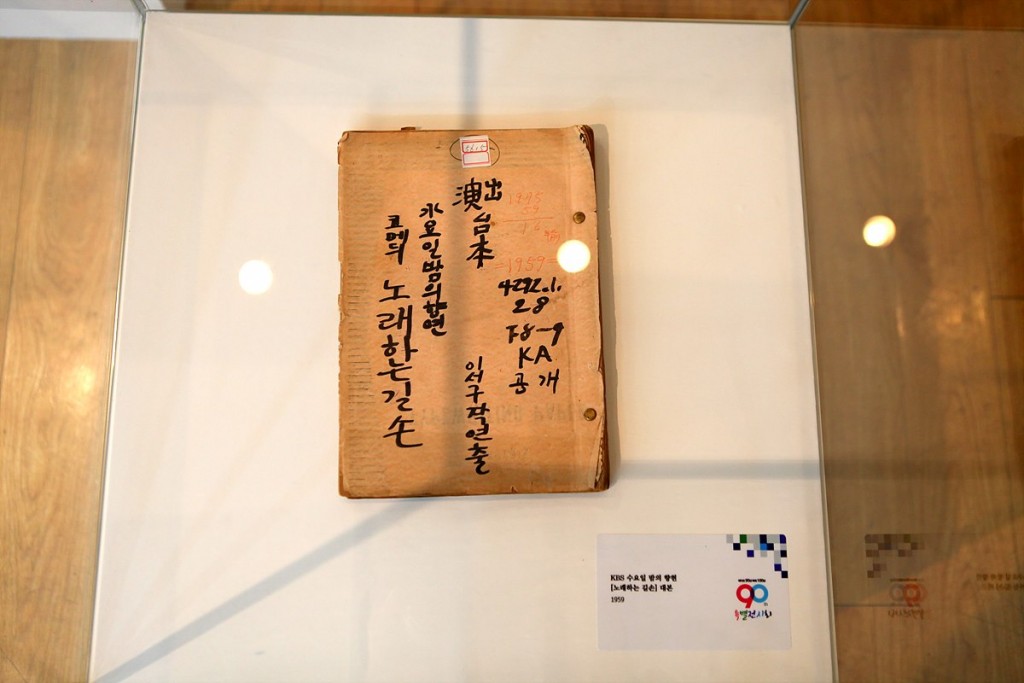 4292.1.
28
F8-9
KA
공개
演出
台本
이서구작연출
水요일밤의향연
코메디 노래하는길손
1995
=1959=
KBS 수요일 밤의 향연
[노래하는 길손] 대본
1959
90
특별전시회